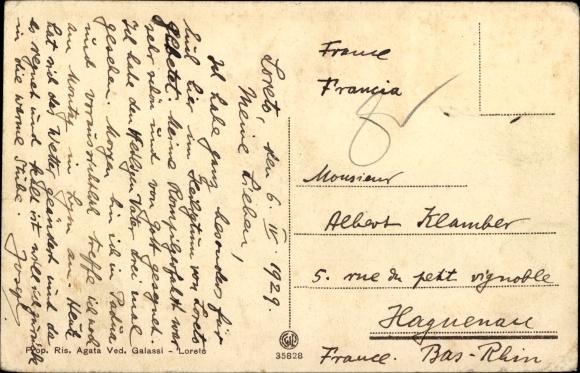 Loreto, den 6. IV 1929.
Meine Lieben,
Ich habe ganz besonders für
Euch hier im Heiligtum von Loreto
gebetet. Meine Rompilgerfahrt war
sehr schön und von Gott gesegnet.
Ich habe den Heiligen Vater drei mal
gesehen. Morgen bin ich in Padua
und voraussichtlich treffe ich wohl
am Montag in Lyon an. Heute
hat sich das Wetter geändert und da
es regnet und kalt ist will ich zurück
in die warme Stube. Joseph
France
Francia
Monsieur
Albert Klamber
5. rue du petit vignoble
Haguenau
France. Bas-Rhin
Prop. Ris. Agata Ved. Galassi - Loreto
35828